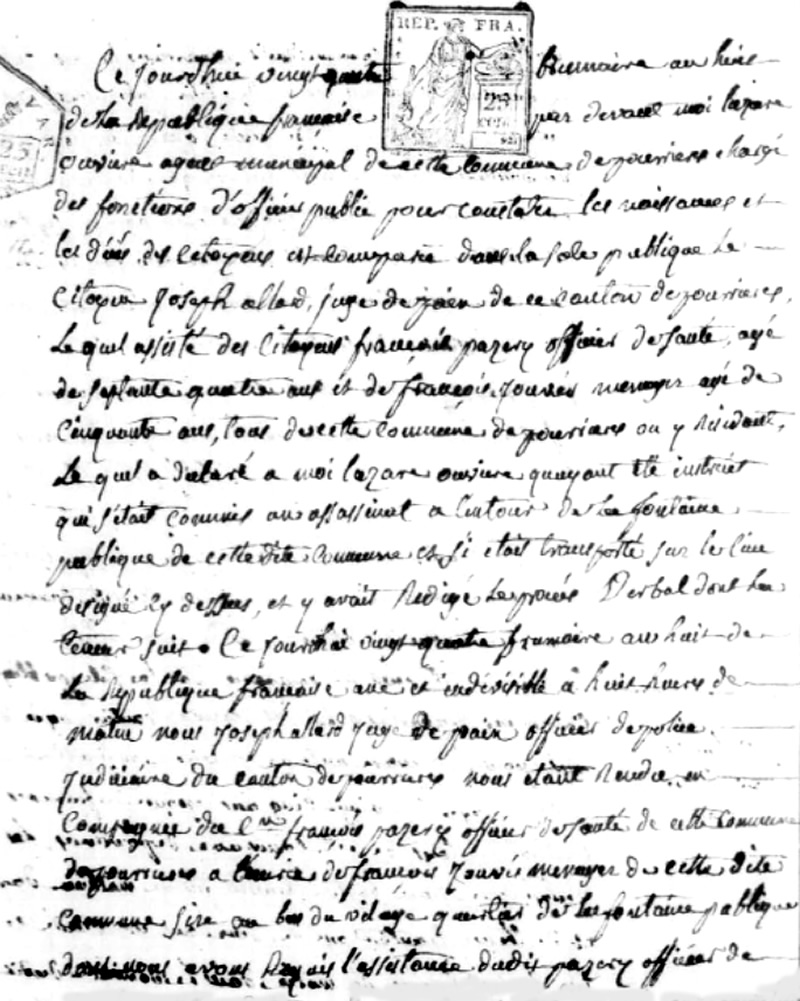 REP. FRA.
25
Ce jourdhui vingt quatre frumaire an huit
de la Republique francaise par devant moi lazare
ouviere agent municipal de cette commune de pourrieres chargé
des fonctions d'officier public pour constater les naissances et
les décés des citoyens est comparu dans la sale publique le
Citoyen Joseph allard, juge de paix de ce canton de pourrieres,
Le quel assisté des Citoyens françois pazery officier de santé, agé
de septante quatre ans et de françois jouvés menager agé de
cinquante ans, tous de cette commune de pourrieres ou y résidant,
Le quel a déclaré a moi lazare ouviere quayant été instruit
qu'il s'était commis un assassinat a l'entour de la fontaine
publique de cette dite commune et si était transporté sur le lieu
désigné cy dessus, et y avait Redigé le procés Verbal dont la
teneur suit. Ce jourdhui vingt quatre frumaire an huit de
La Republique francaise une et indivisible a huit heures de
matin nous Joseph allard Juge de paix officier de police
Judiciaire du canton de pourrieres nous étant Rendu en
Compagnie du C.en françois pazery officier de santé de cette commune
de pourrieres a de françois Jouvés menager de cette dite
commune sise au bas du vilage quartier de la fontaine publique
dont nous avons Requis l'assistance dudit pazery officier de